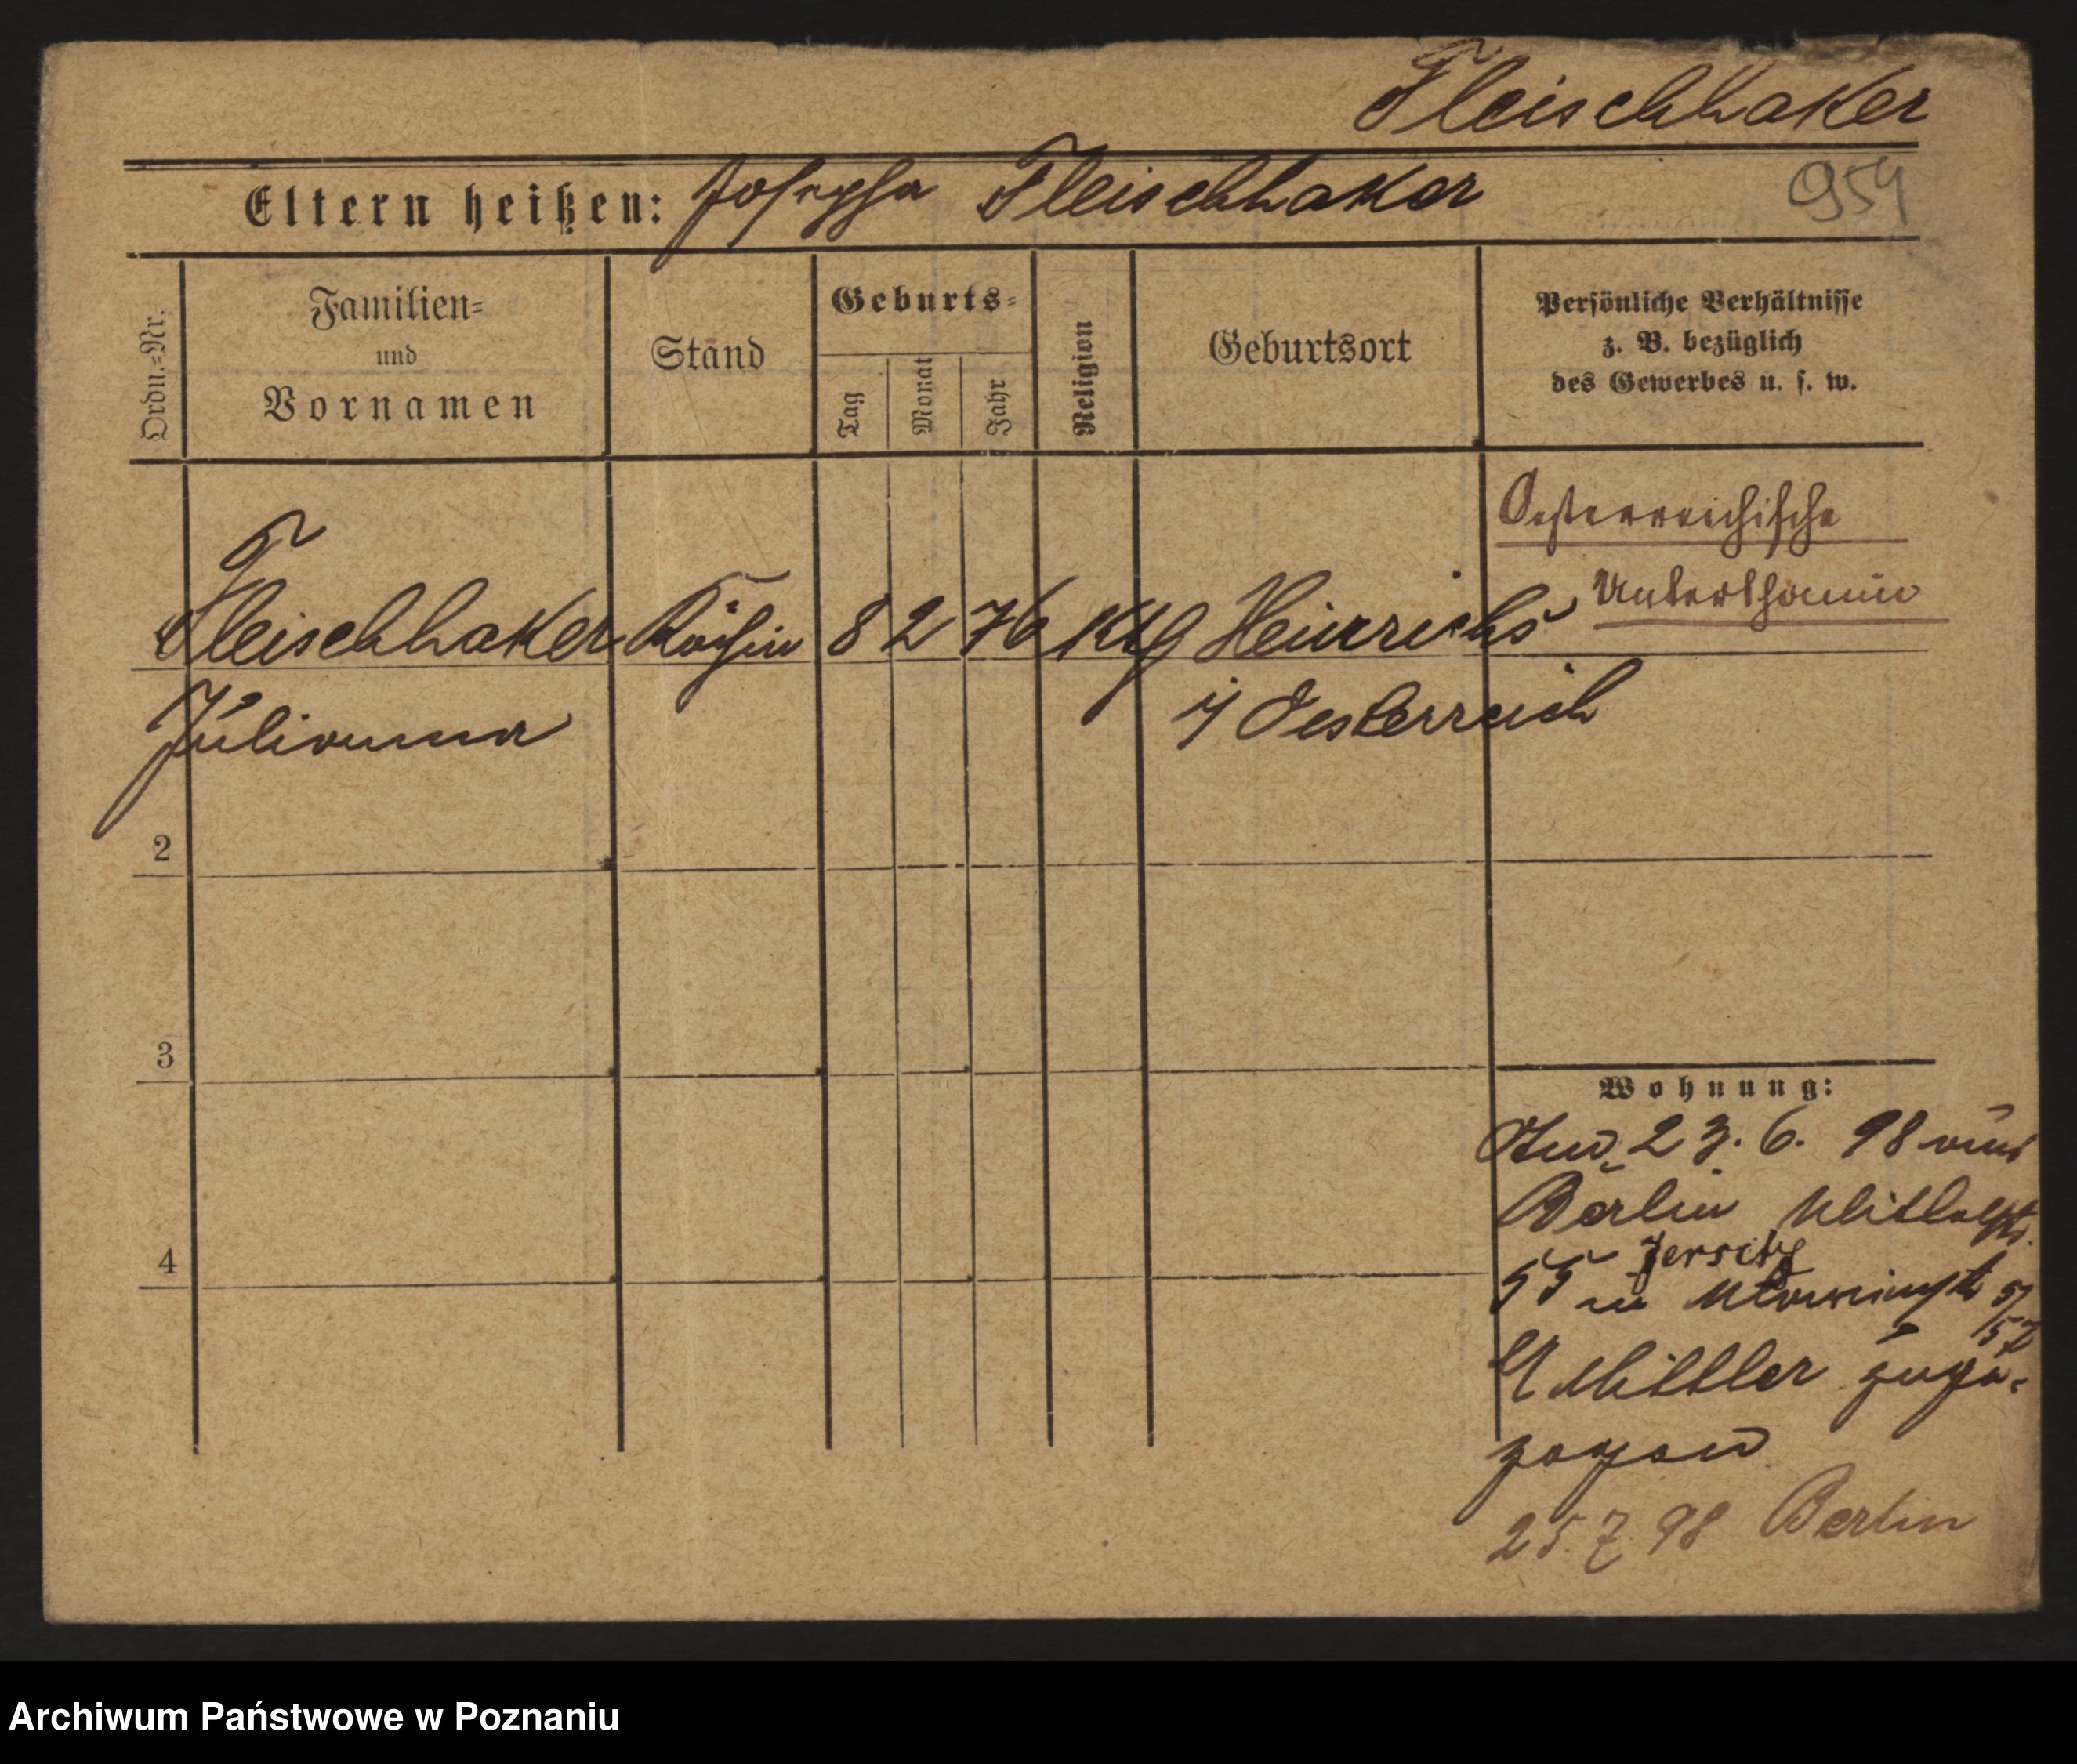 Fleischhaker
Eltern heißen: Josepha Fleischhaker
954
Ordn.=Nr.
Familien=
und
Vornamen
Stand
Geburts=
Tag
Monat
Jahr
Religion
Geburtsort
Persönliche Verhältnisse
z. B. bezüglich
des Gewerbes u. s. w.
Oesterreichische
Unterthanin
Fleischhaker Köchin 8 2 76 Ktg Heinrichs
Julianna i/ Oesterreich
2
3
4
Wohnung:
23. 6. 98 aus
Berlin
Jersitz
55 57
Mittler zuge-
zogen
25. 7. 98 Berlin
Archiwum Państwowe w Poznaniu